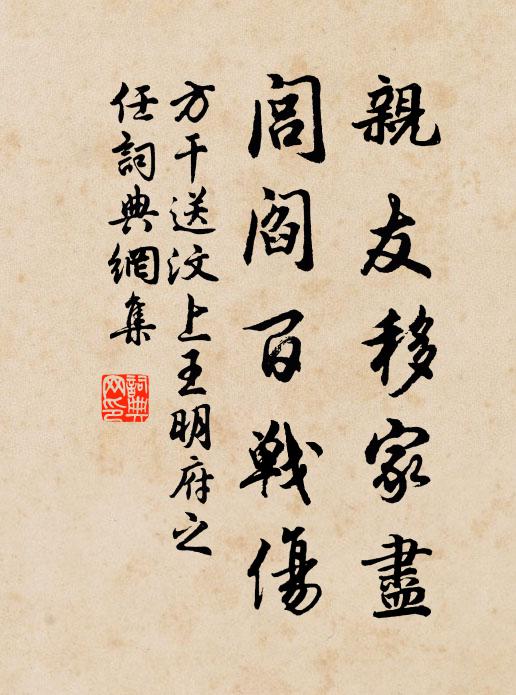 親友移家盡
閭閻百戰傷
方干送汶上王明府之
任詞典網集
詞典
网印